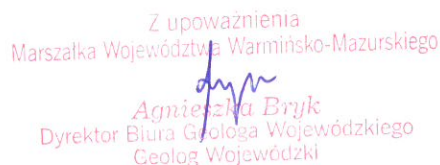 Z upoważnienia
Marszałka Województwa Warmińsko-Mazurskiego
Agnieszka Bryk
Dyrektor Biura Geologa Wojewódzkiego
Geolog Wojewódzki